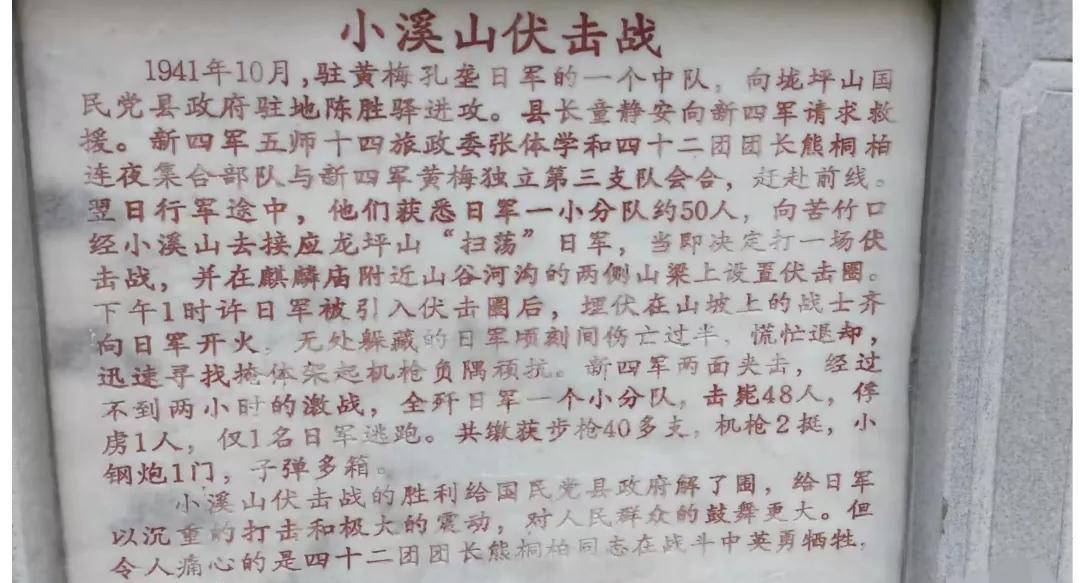 小溪山伏击战
1941年10月,驻黄梅孔垄日军的一个中队，向垅坪山国
民党县政府驻地陈胜驿进攻。县长童静安向新四军请求救
援。新四军五师十四旅政委张体学和四十二团团长熊桐柏
连夜集合部队与新四军黄梅独立第三支队会合，赶赴前线。
翌日行军途中，他们获悉日军一小分队约50人，向苦竹口
经小溪山去接应龙坪山“扫荡”日军，当即决定打一场伏
击战，并在麒麟庙附近山谷河沟的两侧山梁上设置伏击圈。
下午1时许日军被引入伏击圈后，埋伏在山坡上的战士齐
向日军开火，无处躲藏的日军顷刻间伤亡过半，慌忙退却，
迅速寻找掩体架起机枪负隅顽抗。新四军两面夹击，经过
不到两小时的激战，全歼日军一个小分队，击毙48人，俘
虏1人，仅1名日军逃跑。共缴获步枪40多支，机枪2挺，小
钢炮1门，子弹多箱。
小溪山伏击战的胜利给国民党县政府解了围，给日军
以沉重的打击和极大的震动，对人民群众的鼓舞更大。但
令人痛心的是四十二团团长熊桐柏同志在战斗中英勇牺牲.